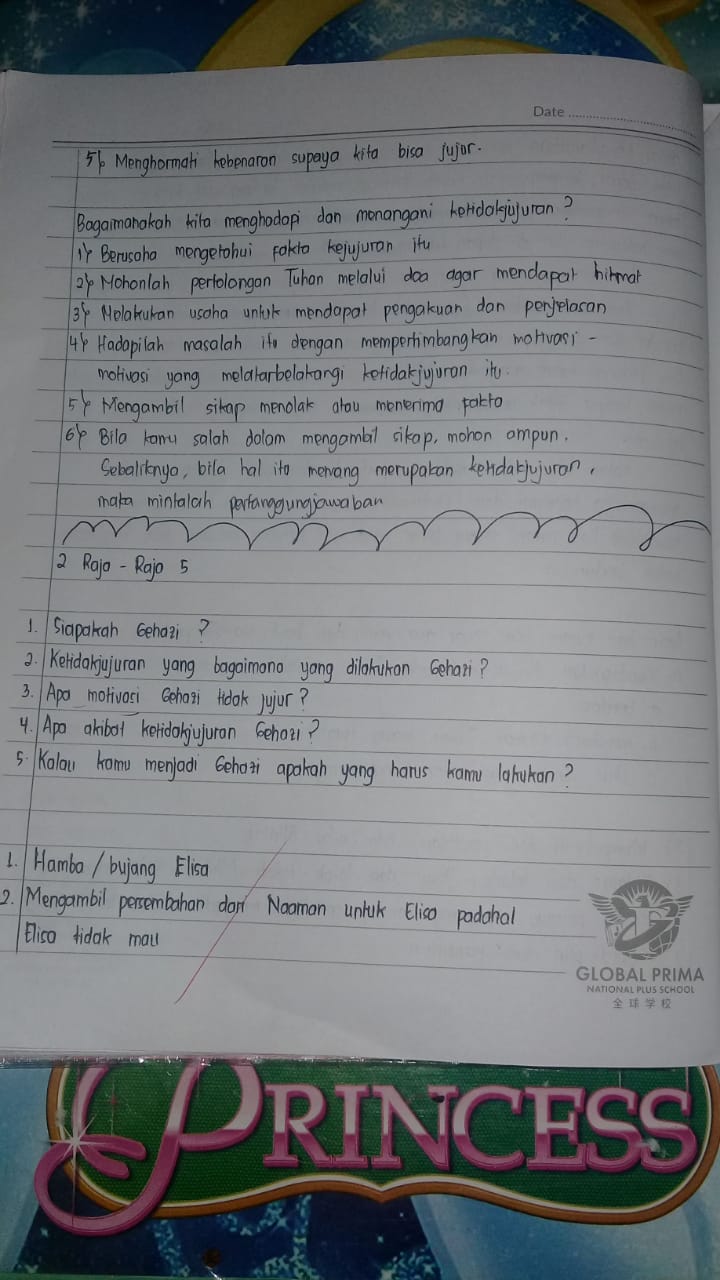 Date ........................
5) Menghormati kebenaran supaya kita bisa jujur.
Bagaimanakah kita menghadapi dan menangani ketidakjujuran?
1) Berusaha mengetahui fakta kejujuran itu
2) Mohonlah pertolongan Tuhan melalui doa agar mendapat hikmat
3) Melakukan usaha untuk mendapat pengakuan dan penjelasan
4) Hadapilah masalah itu dengan mempertimbangkan motivasi -
motivasi yang melatarbelakangi ketidakjujuran itu.
5) Mengambil sikap menolak atau menerima fakta
6) Bila kamu salah dalam mengambil sikap, mohon ampun.
Sebaliknya, bila hal itu memang merupakan ketidakjujuran,
maka mintalah pertanggungjawaban
2 Raja - Raja 5
1. Siapakah Gehazi?
2. Ketidakjujuran yang bagaimana yang dilakukan Gehazi?
3. Apa motivasi Gehazi tidak jujur?
4. Apa akibat ketidakjujuran Gehazi?
5. Kalau kamu menjadi Gehazi apakah yang harus kamu lakukan?
1. Hamba / bujang Elisa
2. Mengambil persembahan dari Naaman untuk Elisa padahal
Elisa tidak mau
GLOBAL PRIMA
NATIONAL PLUS SCHOOL
全球学校
PRINCESS